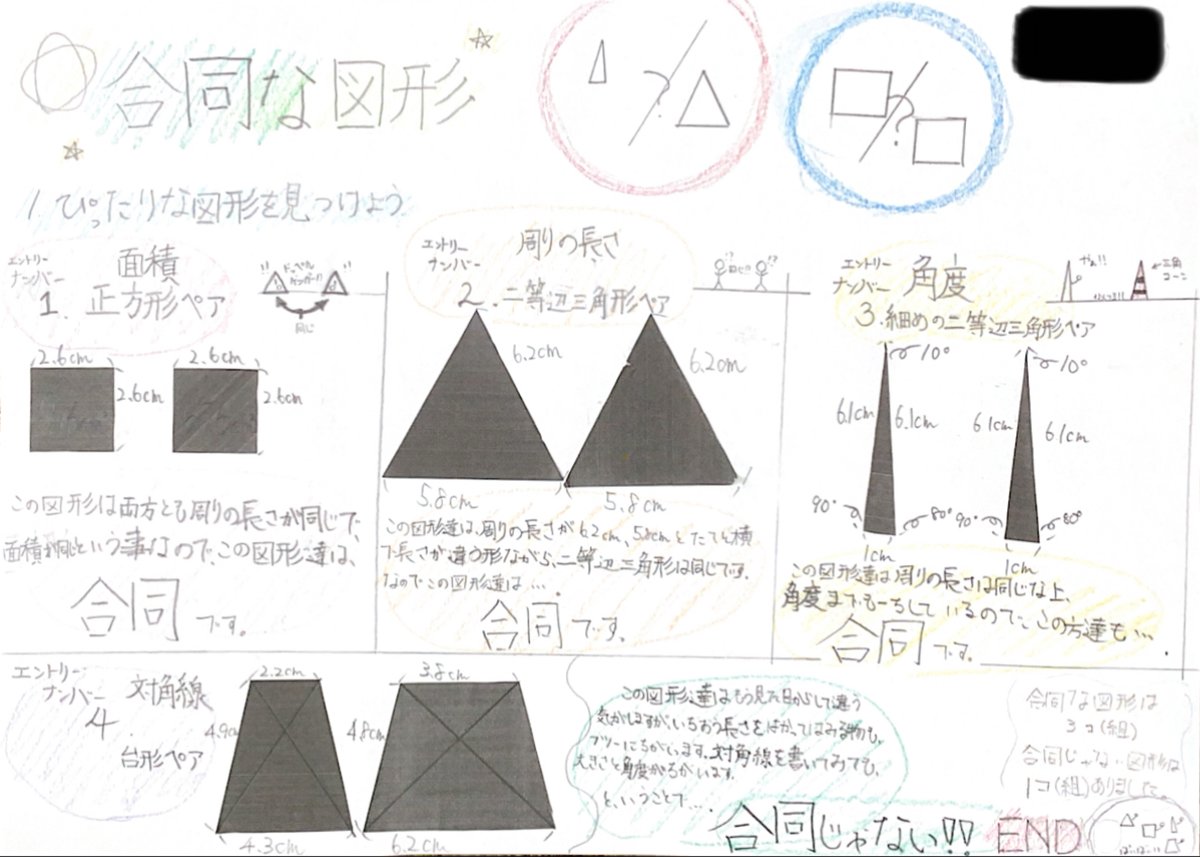 合同な図形
?
?
1.ぴったりな図形を見つけよう
エントリーナンバー
1.
面積
正方形ペア
!!
!!
同じ
2.6cm
2.6cm
2.6cm
2.6cm
この図形は両方とも周りの長さが同じで、
面積も同じという事なので、この図形達は、
合同です。
エントリーナンバー
2.
周りの長さ
二等辺三角形ペア
!?
!?
6.2cm
6.2cm
5.8cm
5.8cm
この図形達は、周りの長さが6.2cm、5.8cmとたてと横
で長さが違う形ながら、二等辺三角形は同じです。
なのでこの図形達は….
合同です。
エントリーナンバー
角度
3.細めの二等辺三角形ペア
三角コーン
10°
10°
6.1cm
6.1cm
6.1cm
6.1cm
90°
80°
90°
80°
1cm
1cm
この図形達は周りの長さは同じな上、
角度まで
しているので、この方達も…
合同です。
エントリーナンバー
4
対角線
台形ペア
2.2cm
3.8cm
4.9cm
4.8cm
4.3cm
6.2cm
この図形達はもう見た目からして違う
気がしますが、いちおう長さをはかってはみる物も、
フツーにちがいます。対角線を書いてみても、
大きさと角度がちがいます。
と、いうことで….
合同じゃない!!
END
合同な図形は
3コ(組)
合同じゃない図形は
1コ(組)ありました。